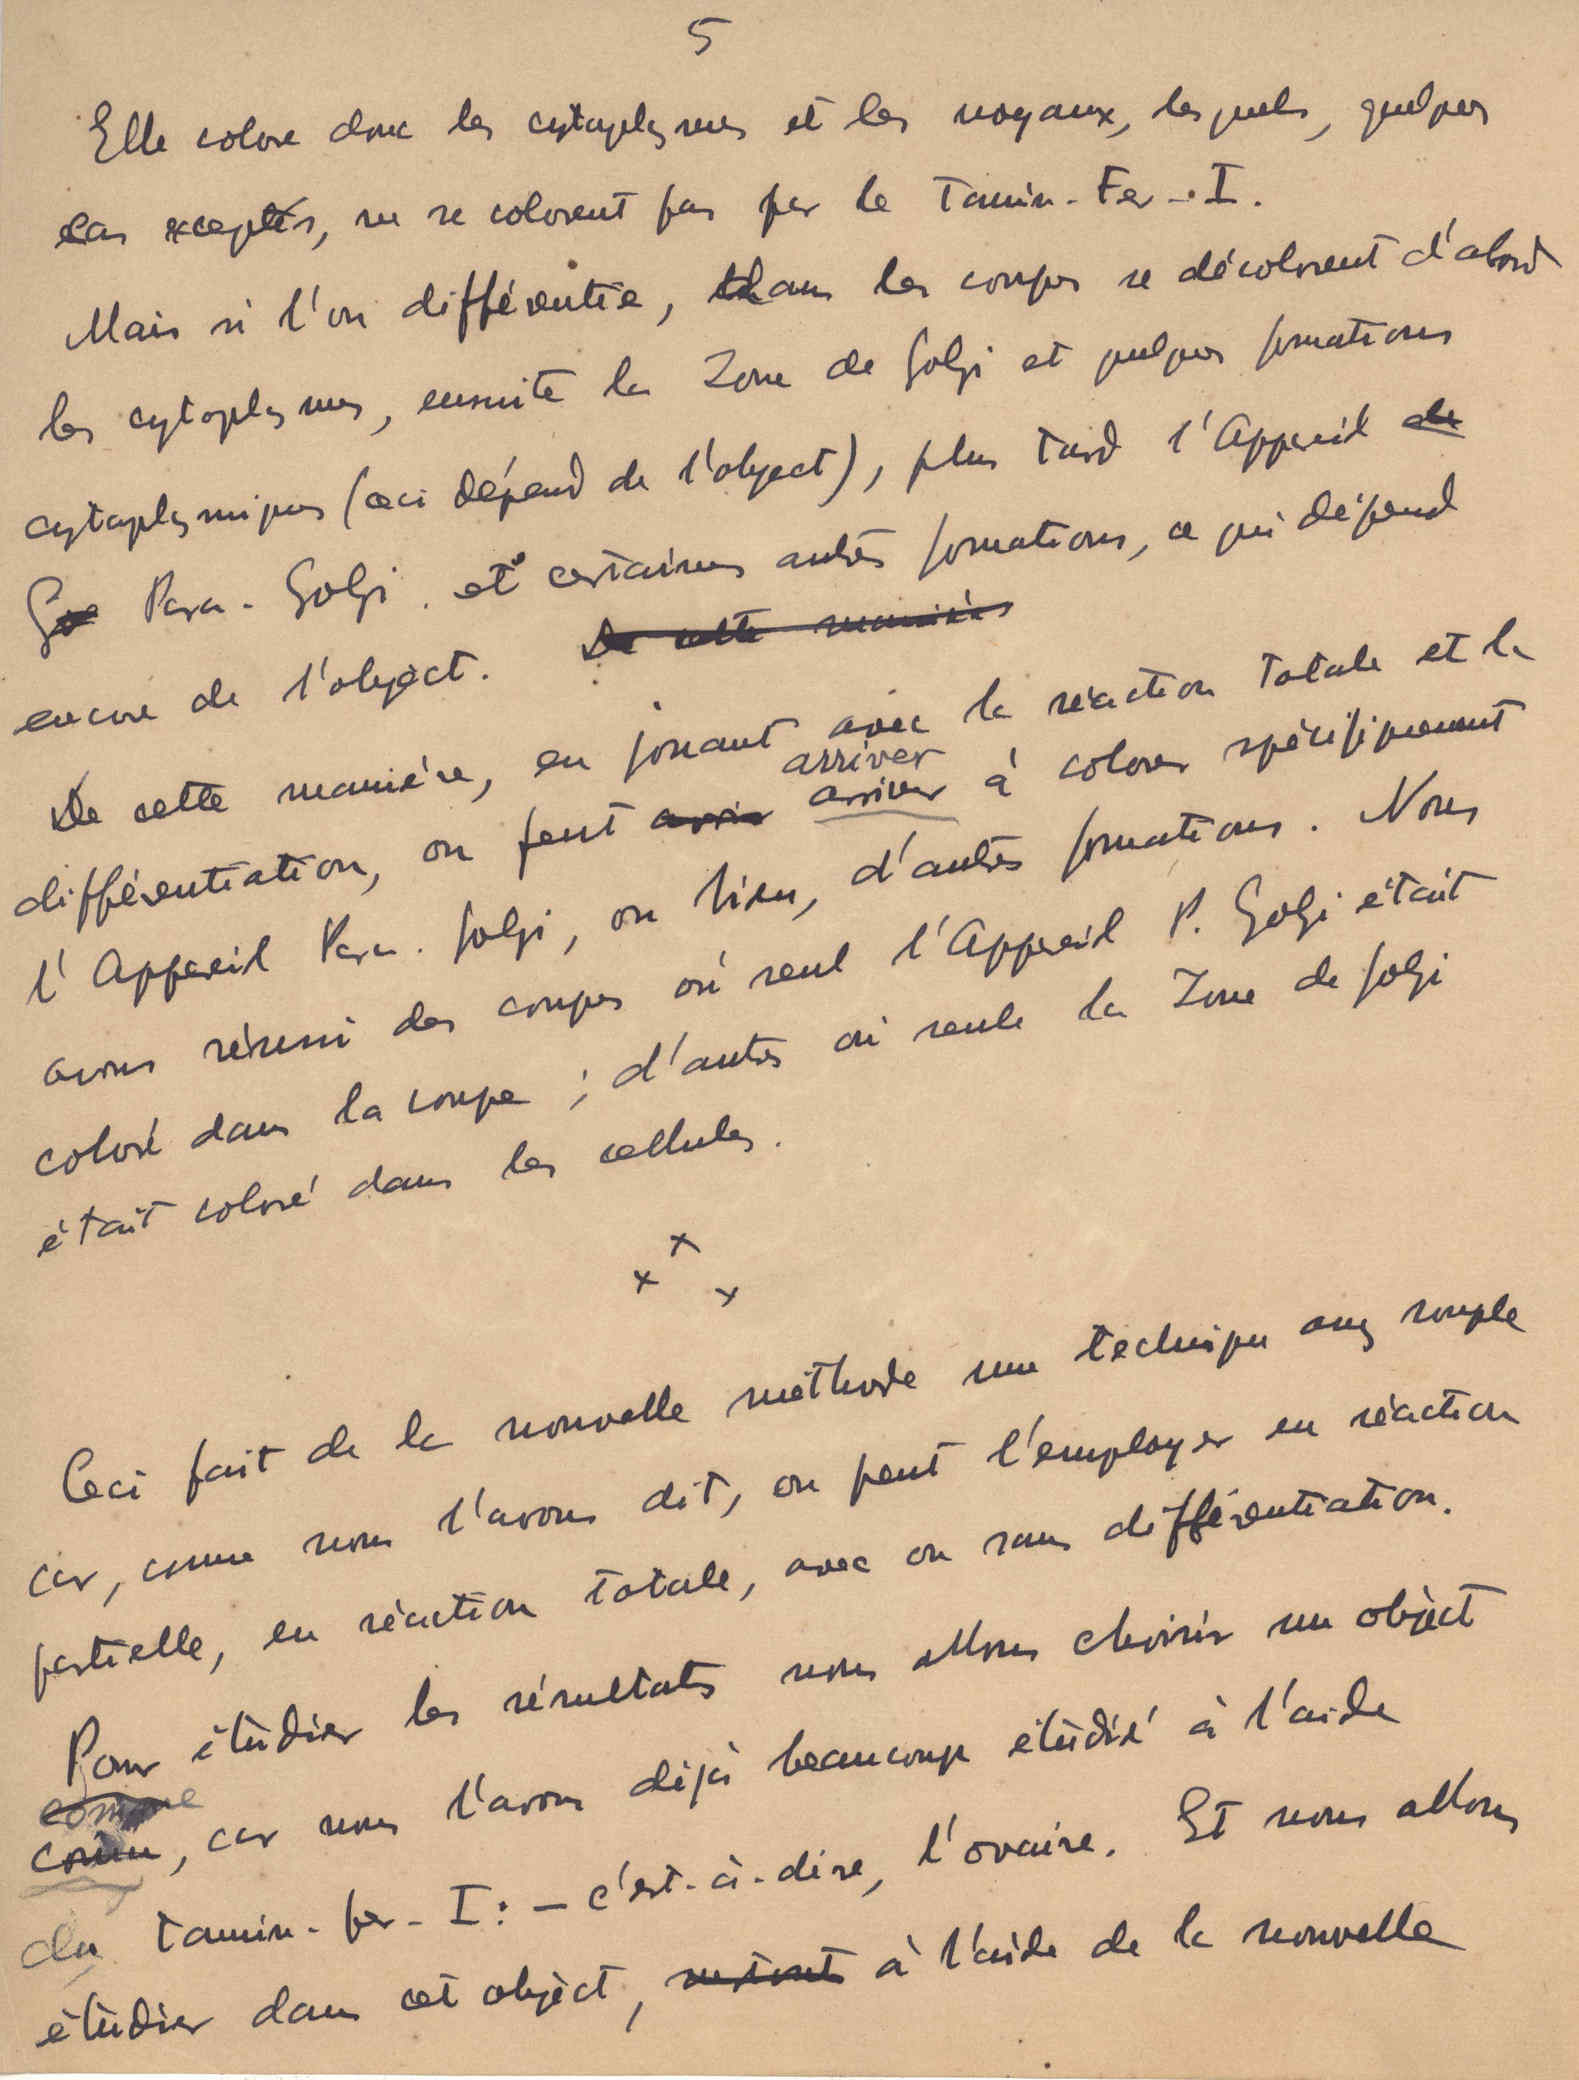 5
Elle colore donc les cytoplasmes et les noyaux, lesquels, quelques
cas exceptés, ne se colorent pas par le Tannin-Fer-I.
Mais si l'on différentie, dans les coupes se décolorent d'abord
les cytoplasmes, ensuite la Zone de Golgi et quelques formations
cytoplasmiques (ceci dépend de l'object), plus tard l'Appareil de
Para-Golgi. et certaines autres formations, ce qui dépend
encore de l'object. De cette manière
De cette manière, en jouant avec la réaction totale et la
arriver
différentiation, on peut arriver à colorer spécifiquement
l'Appareil Para-Golgi, ou bien, d'autres formations. Nous
avons réussi des coupes où seul l'Appareil P. Golgi était
coloré dans la coupe; d'autres où seule la Zone de Golgi
était coloré dans les cellules.
x x x
Ceci fait de la nouvelle méthode une technique assez souple
car, comme nous l'avons dit, on peut l'employer en réaction
partielle, en réaction totale, avec ou sans différentiation.
Pour étudier les résultats nous allons choisir un object
comme
connu, car nous l'avons déjà beaucoup étudié à l'aide
du tannin-fer-I: — c'est-à-dire, l'ovaire. Et nous allons
étudier dans cet object, à l'aide de la nouvelle